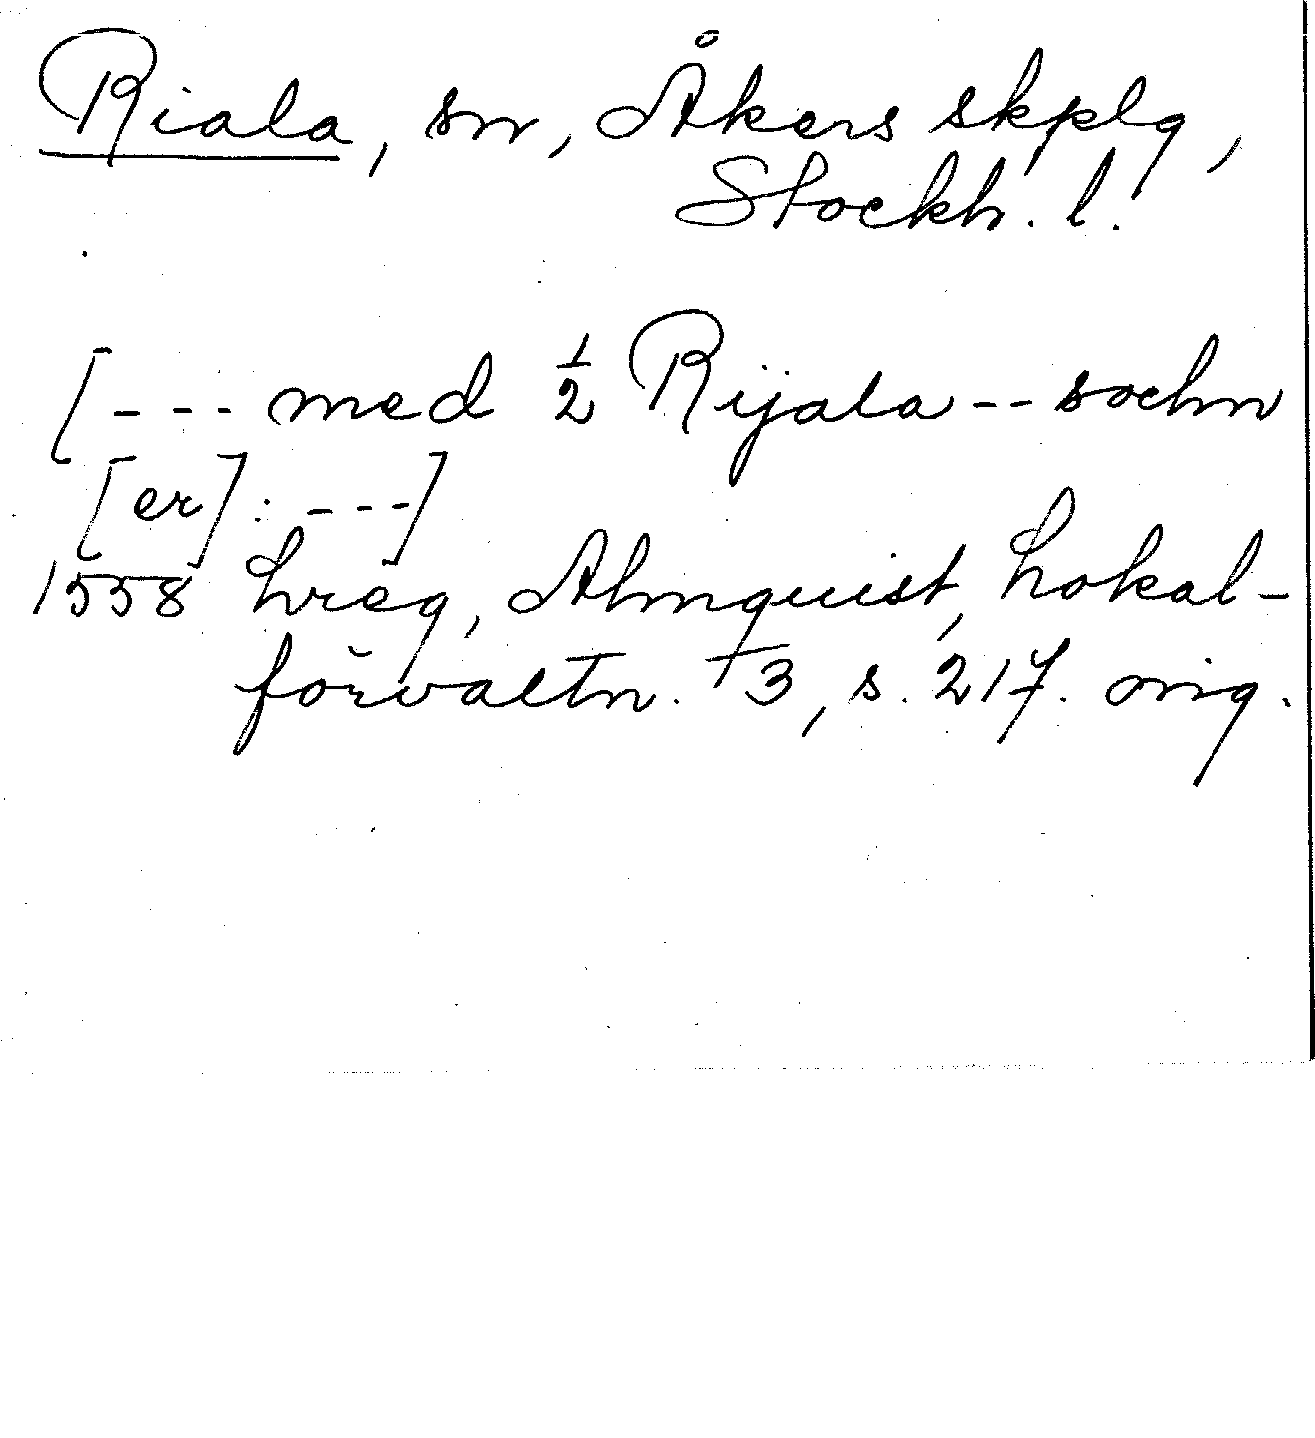 Riala, sn, Åkers skplg,
Stockh. l.
[--- med ½ Rijala -- sochn
[er]: ---]
1558 Lreg, Almquist, Lokal-
förvaltn. 3, s. 217. orig.